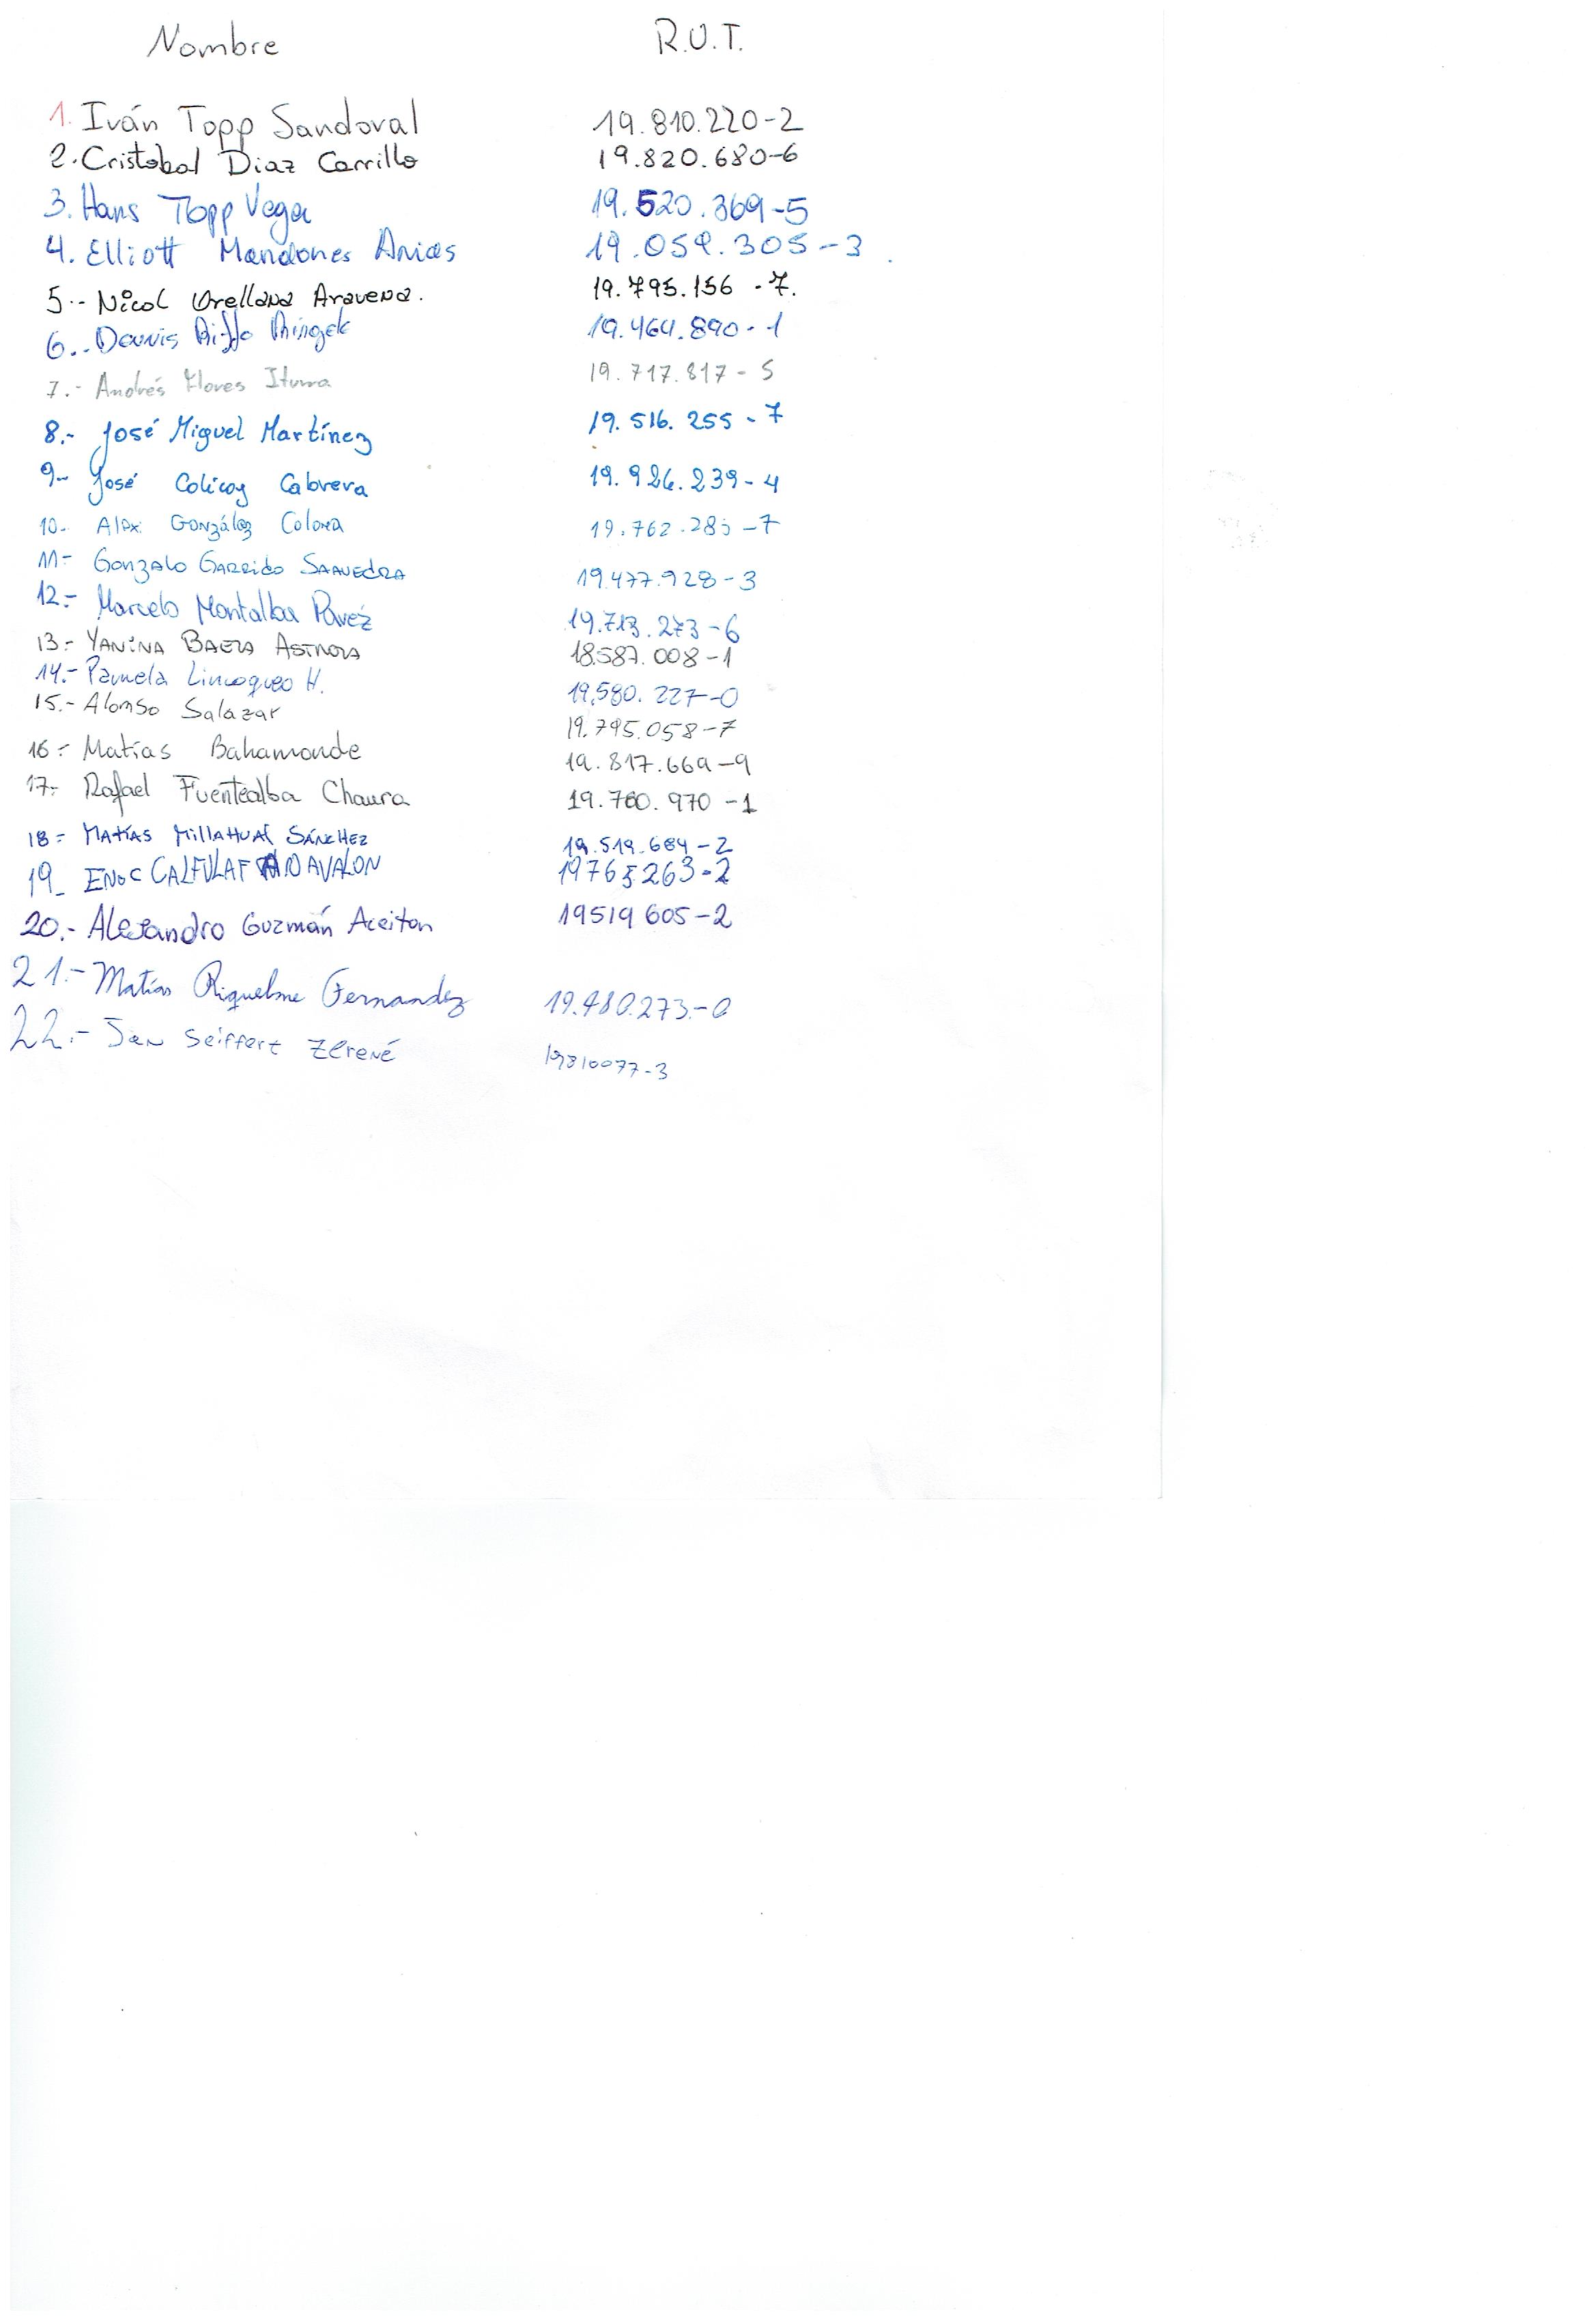 Nombre R.U.T.
1. Iván Topp Sandoval 19.810.220-2
2. Cristobal Diaz Carrillo 19.820.680-6
3. Hans Topp Vega 19.520.369-5
4. Elliott Mardones Arias 19.059.305-3
5.- Nicol Orellana Aravena. 19.795.156-7.
6.- Dennis Riffo 19.464.890-1
7.- Andrés Flores Iturra 19.717.817-5
8.- José Miguel Martínez 19.516.255-7
9- José Colicoy Cabrera 19.926.239-4
10- Alex González Colona 19.762.285-7
11- Gonzalo Garrido Saavedra 19.477.928-3
12.- Marcelo Montalba Pavez 19.713.273-6
13.- Yanina Baeza 18.587.008-1
14.- Pamela Lincoqueo H. 19.580.227-0
15.- Alonso Salazar 19.795.058-7
16.- Matías Bahamonde 19.817.669-9
17.- Rafael Fuentealba Chaura 19.760.970-1
18.- MATÍAS MILLAHUAL SÁNCHEZ 19.519.684-2
19_ ENOC CALFULAF 19765263-2
20.- Alejandro Guzmán Aceiton 19519605-2
21.- Matías Riquelme Fernandez 19.480.273-0
22.- Jan Seiffert Zerené 19810077-3